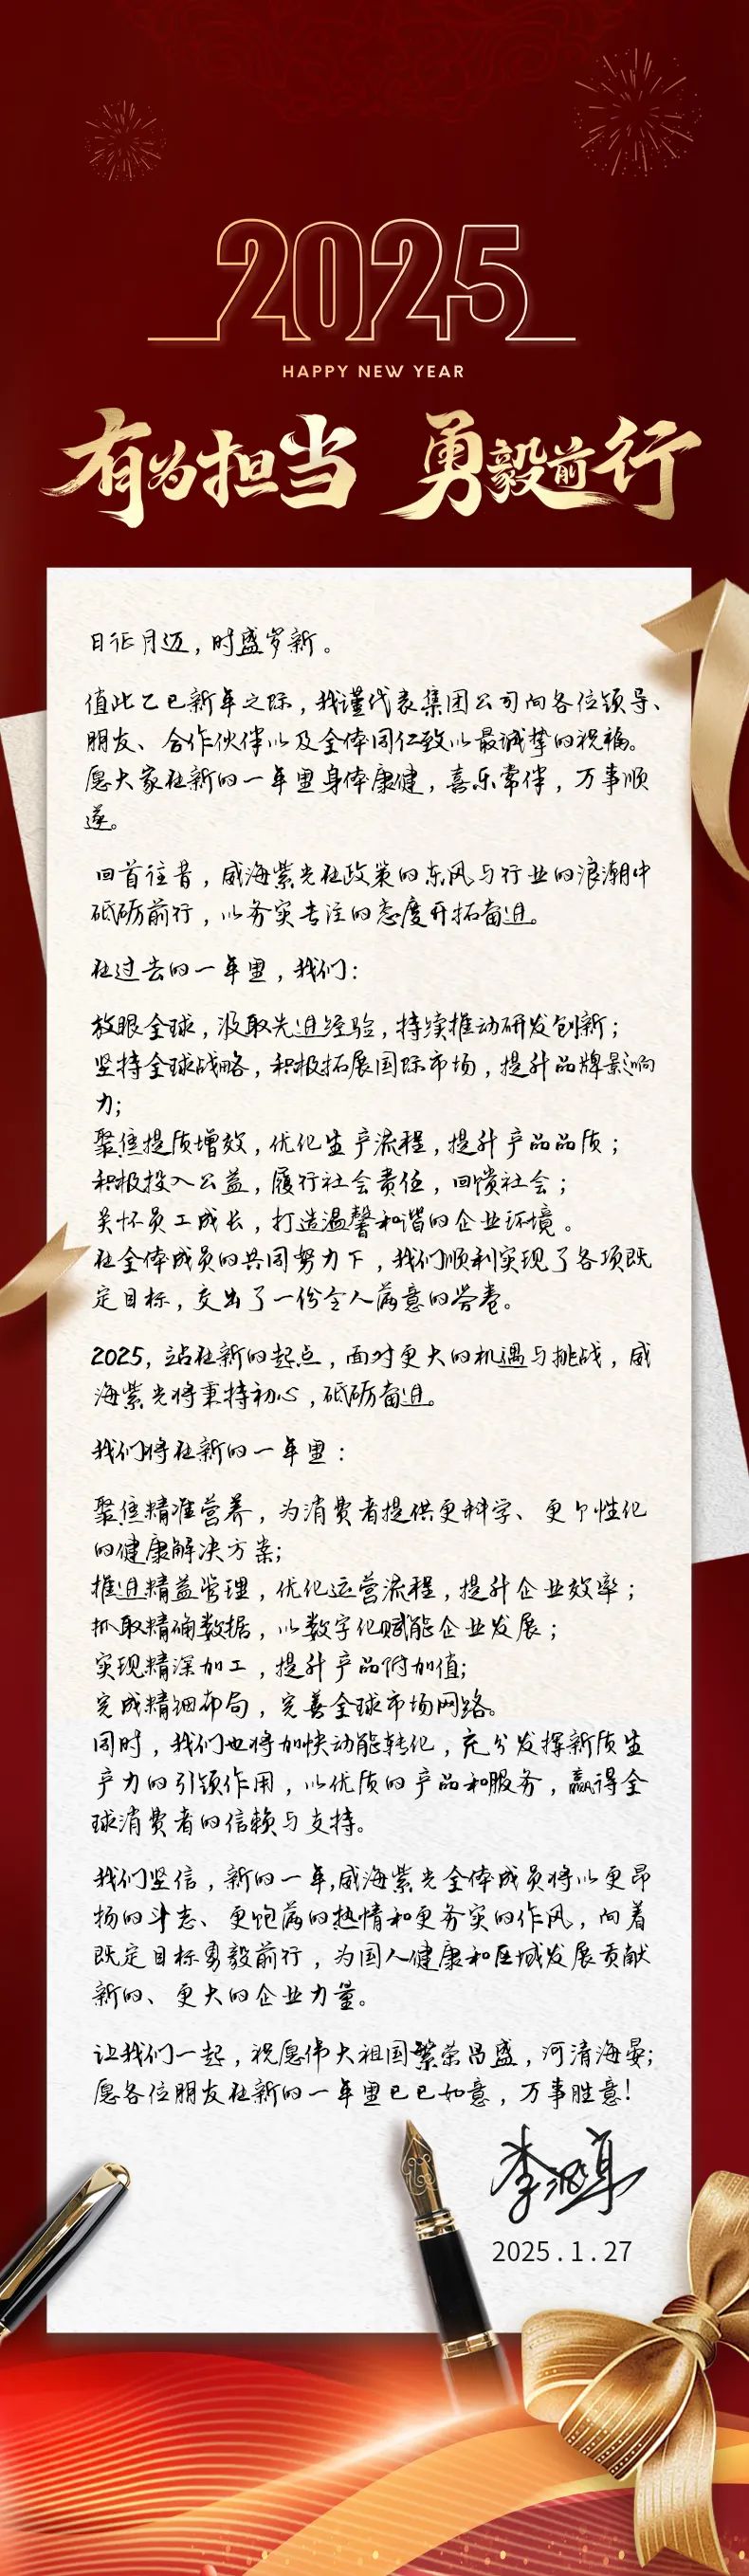 2025
HAPPY NEW YEAR
有为担当 勇毅前行
日征月迈，时盛岁新。
值此乙巳新年之际，我谨代表集团公司向各位领导、
朋友、合作伙伴以及全体同仁致以最诚挚的祝福。
愿大家在新的一年里身体康健，喜乐常伴，万事顺
遂。
回首往昔，威海紫光在政策的东风与行业的浪潮中
砥砺前行，以务实专注的态度开拓奋进。
在过去的一年里，我们：
放眼全球，汲取先进经验，持续推动研发创新；
坚持全球战略，积极拓展国际市场，提升品牌影响
力；
聚焦提质增效，优化生产流程，提升产品品质；
积极投入公益，履行社会责任，回馈社会；
关怀员工成长，打造温馨和谐的企业环境。
在全体成员的共同努力下，我们顺利实现了各项既
定目标，交出了一份令人满意的答卷。
2025，站在新的起点，面对更大的机遇与挑战，威
海紫光将秉持初心，砥砺奋进。
我们将在新的一年里：
聚焦精准营养，为消费者提供更科学、更个性化
的健康解决方案；
推进精益管理，优化运营流程，提升企业效率；
抓取精确数据，以数字化赋能企业发展；
实现精深加工，提升产品附加值；
完成精细布局，完善全球市场网络。
同时，我们也将加快动能转化，充分发挥新质生
产力的引领作用，以优质的产品和服务，赢得全
球消费者的信赖与支持。
我们坚信，新的一年，威海紫光全体成员将以更昂
扬的斗志、更饱满的热情和更务实的作风，向着
既定目标勇毅前行，为国人健康和区域发展贡献
新的、更大的企业力量。
让我们一起，祝愿伟大祖国繁荣昌盛，河清海晏；
愿各位朋友在新的一年里巳巳如意，万事胜意！
2025.1.27